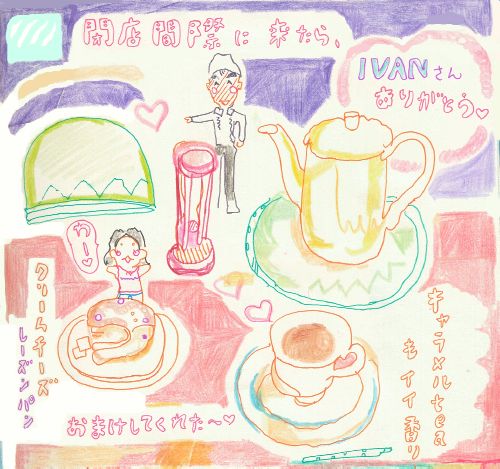 閉店間際に来たら、
IVANさん
ありがとう♡
わー♡
クリームチーズ
レーズンパン
キャラメルtea
もイイ香り
おまけしてくれた〜♡